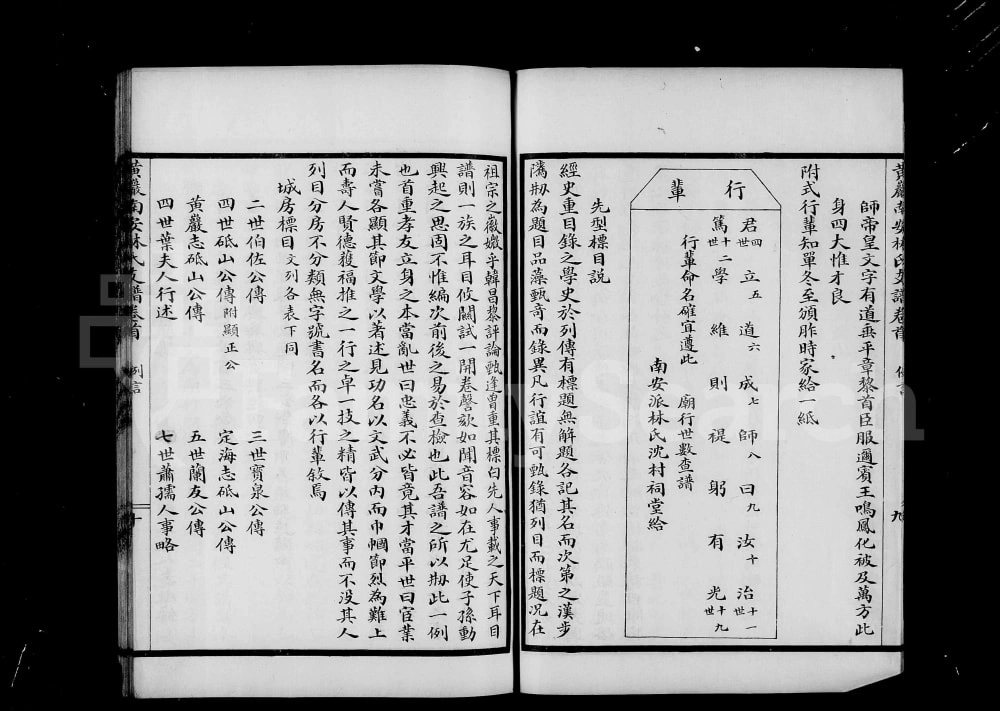 黃巖南安林氏支譜卷首　例言
師帝皇文字有道垂平章黎首臣服邇賓王鳴鳳化被及萬方此
身四大惟才良
附式行輩知單冬至頒胙時家給一紙
行輩
君四世　立五　道六　成七　師八　曰九　汝十　治十一世
篤十二世　學　維　則　禔　躬　有　光十九世
行輩命名確宜遵此　廟行世數查譜
南安派林氏沈村祠堂給
先型標目説
經史重目錄之學史於列傳有標題無解題各記其名而次第之漢步
隲刱為題目品藻甄奇而錄異凡行誼有可甄錄猶列目而標題况在
九
祖宗之徽媺乎韓昌黎評論甄逢曾重其標白先人事載之天下耳目
譜則一族之耳目攸關試一開卷謦欬如聞音容如在尤足使子孫動
興起之思固不惟編次前後之易於查檢也此吾譜之所以刱此一例
也首重孝友立身之本當亂世曰忠義不必皆竟其才當平世曰宦業
未嘗各顯其節文學以著述見功名以文武分內而巾幗節烈為難上
而壽人賢德獲福推之一行之卓一技之精皆以傳其事而不没其人
列目分房不分類無字號書名而各以行輩敘焉
城房標目文列各表下同
二世伯佐公傳　三世寶泉公傳
四世砥山公傳附顯正公　定海志砥山公傳
黃巖志砥山公傳　五世蘭友公傳
四世葉夫人行述　七世蕭孺人事略
黃巖南安林氏支譜卷首　例言
十